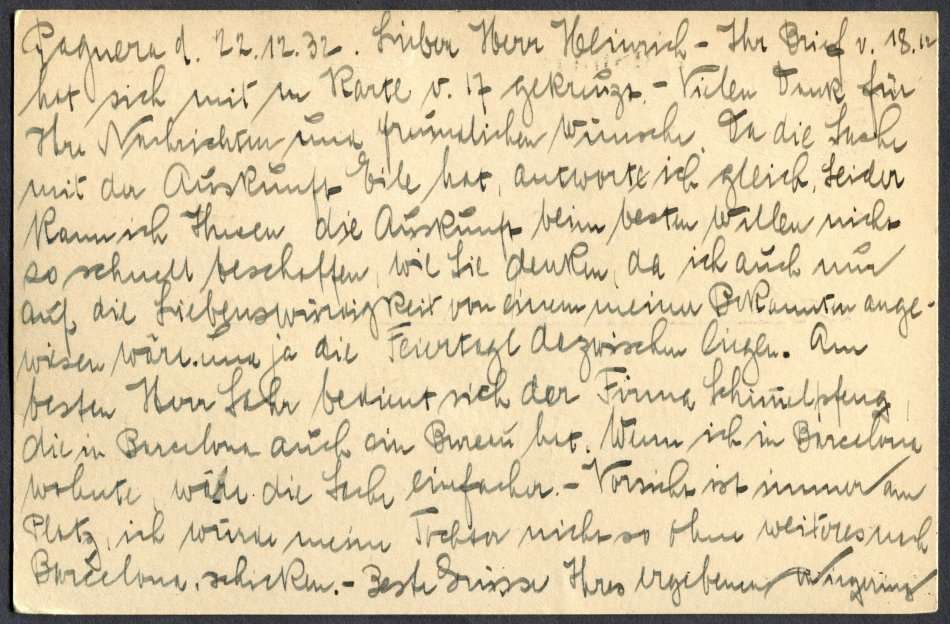 Paguera d. 22.12.32. Lieber Herr Heinrich - Ihr Brief v. 18.12
hat sich mit m Karte v. 17 gekreuzt. - Vielen Dank für
Ihre Nachrichten und freundlichen Wünsche. Da die Sache
mit der Auskunft Eile hat, antworte ich gleich, Leider
kann ich Ihnen die Auskunft beim besten Willen nicht
so schnell beschaffen, wie Sie denken, da ich auch nur
auf die Liebenswürdigkeit von einem meiner Bekannten ange-
wiesen wäre. und ja die Feiertage dazwischen liegen. Am
besten Herr bedient sich der Firma Schimmelpfeng,
die in Barcelona auch ein Bureau hat. Wenn ich in Barcelona
wohnte, wäre die Sache einfacher. - Vorsicht ist immer am
Platz, ich würde meine Tochter nicht so ohne weiteres nach
Barcelona schicken. - Beste Grüsse Ihres ergebenen